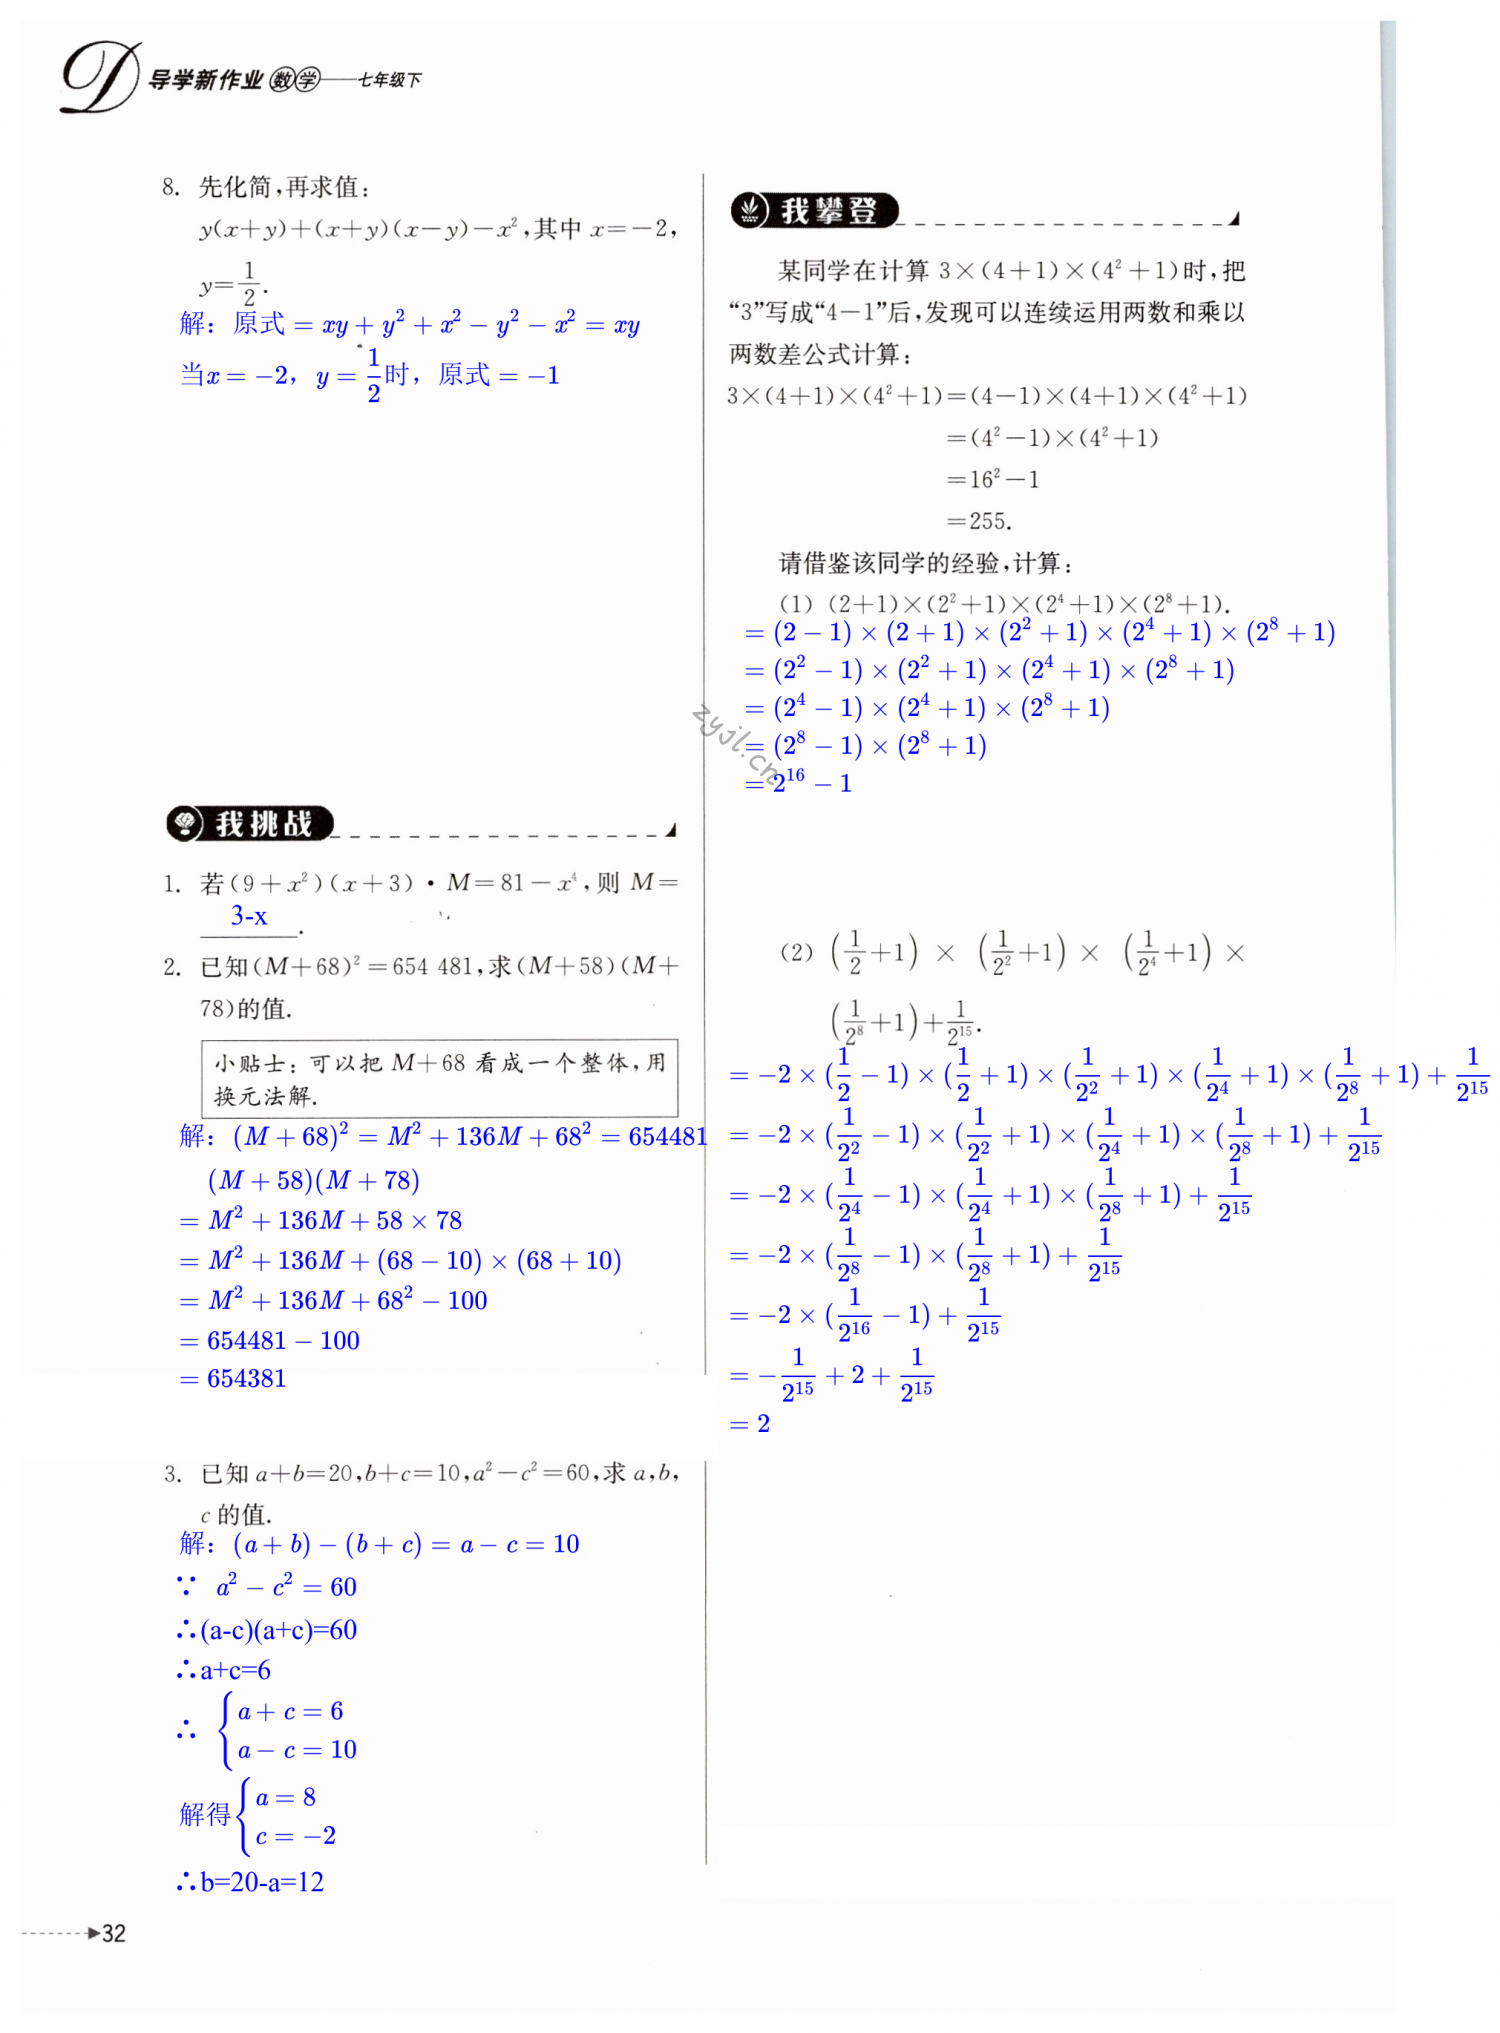 导学新作业 数学——七年级下
8. 先化简,再求值:
y(x+y)+(x+y)(x-y)-x²,其中 x=-2,
y=1/2.
解:原式 = xy + y² + x² - y² - x² = xy
当x = -2, y = 1/2时, 原式 = -1
我挑战
1. 若(9+x²)(x+3)·M=81-x⁴,则 M=
3-x.
2. 已知(M+68)²=654 481,求(M+58)(M+
78)的值.
小贴士:可以把 M+68 看成一个整体,用
换元法解.
解:(M + 68)² = M² + 136M + 68² = 654481
(M + 58)(M + 78)
= M² + 136M + 58 × 78
= M² + 136M + (68 - 10) × (68 + 10)
= M² + 136M + 68² - 100
= 654481 - 100
= 654381
3. 已知 a+b=20,b+c=10,a²-c²=60,求 a,b,
c 的值.
解:(a + b) - (b + c) = a - c = 10
∵ a² - c² = 60
∴(a-c)(a+c)=60
∴a+c=6
∴ { a + c = 6
a - c = 10
解得{ a = 8
c = -2
∴b=20-a=12
32
我攀登
某同学在计算 3×(4+1)×(4²+1)时,把
“3”写成“4-1”后,发现可以连续运用两数和乘以
两数差公式计算:
3×(4+1)×(4²+1)=(4-1)×(4+1)×(4²+1)
=(4²-1)×(4²+1)
=16²-1
=255.
请借鉴该同学的经验,计算:
(1) (2+1)×(2²+1)×(2⁴+1)×(2⁸+1).
= (2 - 1) × (2 + 1) × (2² + 1) × (2⁴ + 1) × (2⁸ + 1)
= (2² - 1) × (2² + 1) × (2⁴ + 1) × (2⁸ + 1)
= (2⁴ - 1) × (2⁴ + 1) × (2⁸ + 1)
= (2⁸ - 1) × (2⁸ + 1)
= 2¹⁶ - 1
zyjl.cn
(2) (1/2+1) × (1/2²+1) × (1/2⁴+1) ×
(1/2⁸+1)+1/2¹⁵.
= -2 × (1/2 - 1) × (1/2 + 1) × (1/2² + 1) × (1/2⁴ + 1) × (1/2⁸ + 1) + 1/2¹⁵
= -2 × (1/2² - 1) × (1/2² + 1) × (1/2⁴ + 1) × (1/2⁸ + 1) + 1/2¹⁵
= -2 × (1/2⁴ - 1) × (1/2⁴ + 1) × (1/2⁸ + 1) + 1/2¹⁵
= -2 × (1/2⁸ - 1) × (1/2⁸ + 1) + 1/2¹⁵
= -2 × (1/2¹⁶ - 1) + 1/2¹⁵
= -1/2¹⁵ + 2 + 1/2¹⁵
= 2